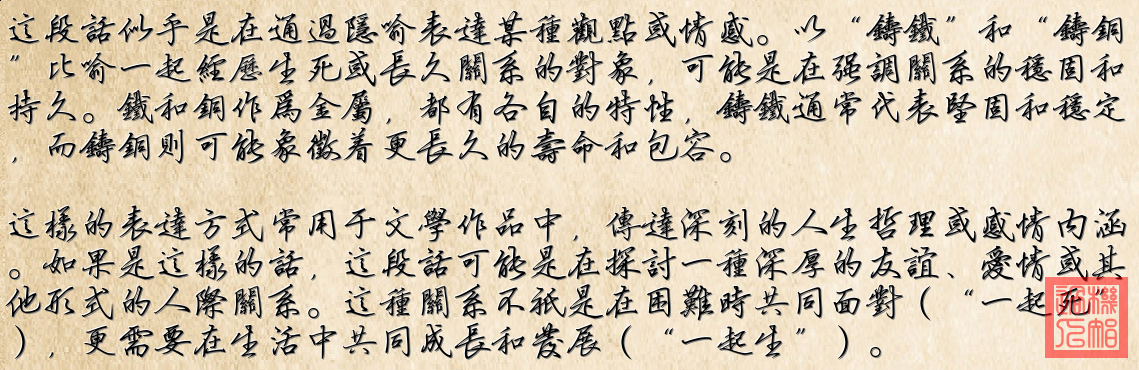 這段話似乎是在通過隱喻表達某種觀點或情感。以“鑄鐵”和“鑄銅
”比喻一起經歷生死或長久關系的對象，可能是在强調關系的穩固和
持久。鐵和銅作爲金屬，都有各自的特性，鑄鐵通常代表堅固和穩定
，而鑄銅則可能象徵着更長久的壽命和包容。
這樣的表達方式常用于文學作品中，傳達深刻的人生哲理或感情内涵
。如果是這樣的話，這段話可能是在探討一種深厚的友誼、愛情或其
他形式的人際關系。這種關系不衹是在困難時共同面對（“一起死”
），更需要在生活中共同成長和發展（“一起生”）。